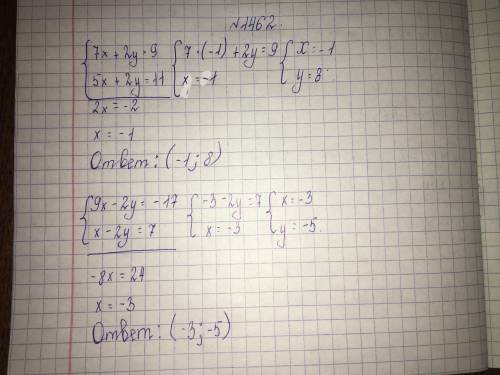 №1462.
{7x+2y=9 {7·(-1)+2y=9 {x=-1
{5x+2y=11 {x=-1 {y=8.
2x=-2
x=-1
Ответ: (-1; 8)
{9x-2y=-17 {-3-2y=7 {x=-3
{x-2y=7 {x=-3 {y=-5.
-8x=24
x=-3
Ответ: (-3; -5)